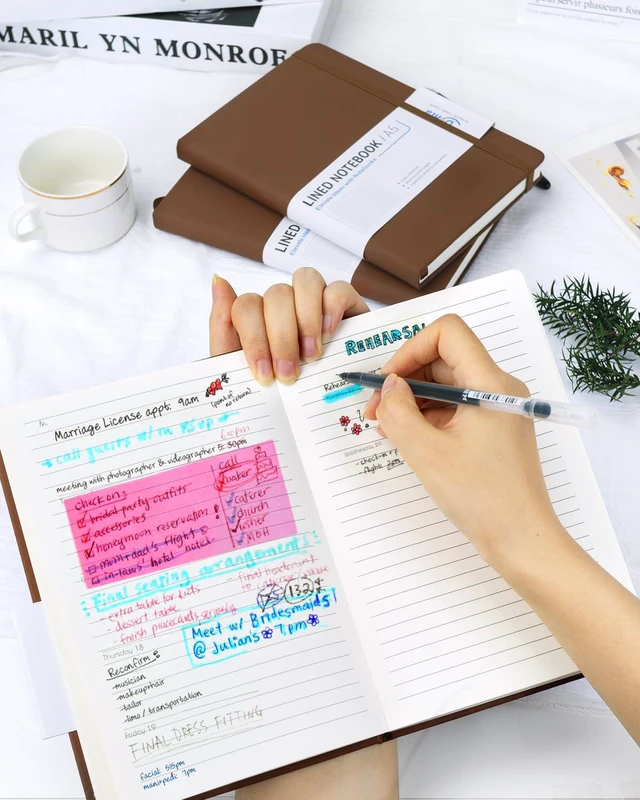 MARILYN MONROE
pour servir plusieurs fois
LINED NOTEBOOK / A5
LINED
Marriage License appt: 9am
(point of
no return)
call guests w/ no RSVP
meeting with photographer & videographer 5:30pm
check on:
bridal party outfits
accessories
honeymoon reservation
mom+dad's flight
in-laws' hotel
call
baker
caterer
church
usher
MOH
Final seating arrangement:
-extra table for kids
-dessert table
-finish placecards seriously
final headcount
132
Meet w/ Bridesmaids!
@ Julian's 1pm
Thursday 18
Reconfirm
-musician
-makeup+hair
-tailor
-limo / transportation
Friday 19
FINAL DRESS FITTING
facial: 5:15pm
mani+pedi: 7pm
REHEARSAL
Rehearsal
-check-in
-flight: